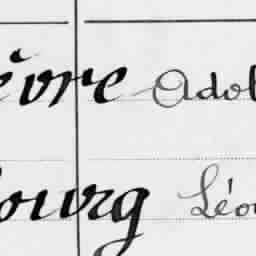 èvre Adol
ourg Léo